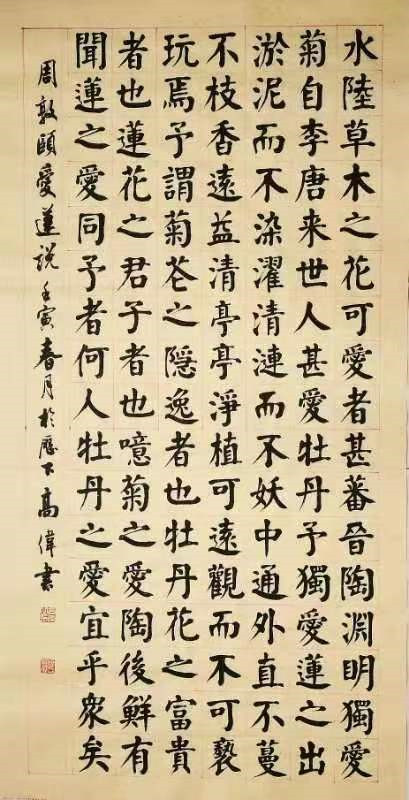 水陸草木之花可愛者甚蕃晉陶淵明獨愛
菊自李唐来世人甚愛牡丹予獨愛蓮之出
淤泥而不染濯清漣而不妖中通外直不蔓
不枝香遠益清亭亭淨植可遠觀而不可褻
玩焉予謂菊花之隱逸者也牡丹花之富貴
者也蓮花之君子者也噫菊之愛陶後鮮有
聞蓮之愛同予者何人牡丹之愛宜乎衆矣
周敦頤愛蓮説壬寅春月於歷下高偉書